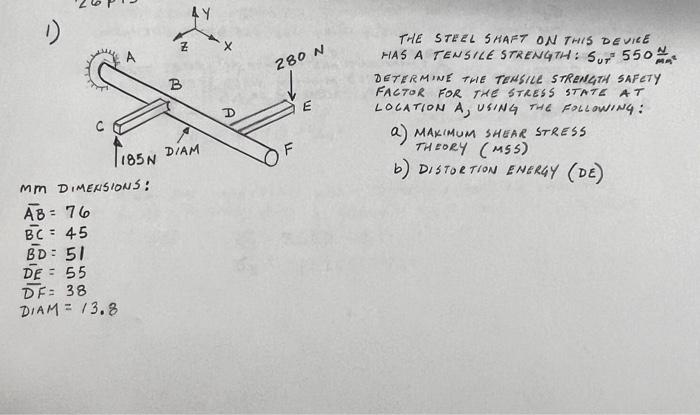 1)
Y
Z
X
280 N
A
B
D
E
C
185N
DIAM
F
THE STEEL SHAFT ON THIS DEVICE
HAS A TENSILE STRENGTH: SUT = 550 N/mm²
DETERMINE THE TENSILE STRENGTH SAFETY
FACTOR FOR THE STRESS STATE AT
LOCATION A, USING THE FOLLOWING:
a) MAXIMUM SHEAR STRESS
THEORY (MSS)
b) DISTORTION ENERGY (DE)
mm DIMENSIONS:
AB = 76
BC = 45
BD = 51
DE = 55
DF = 38
DIAM = 13.8